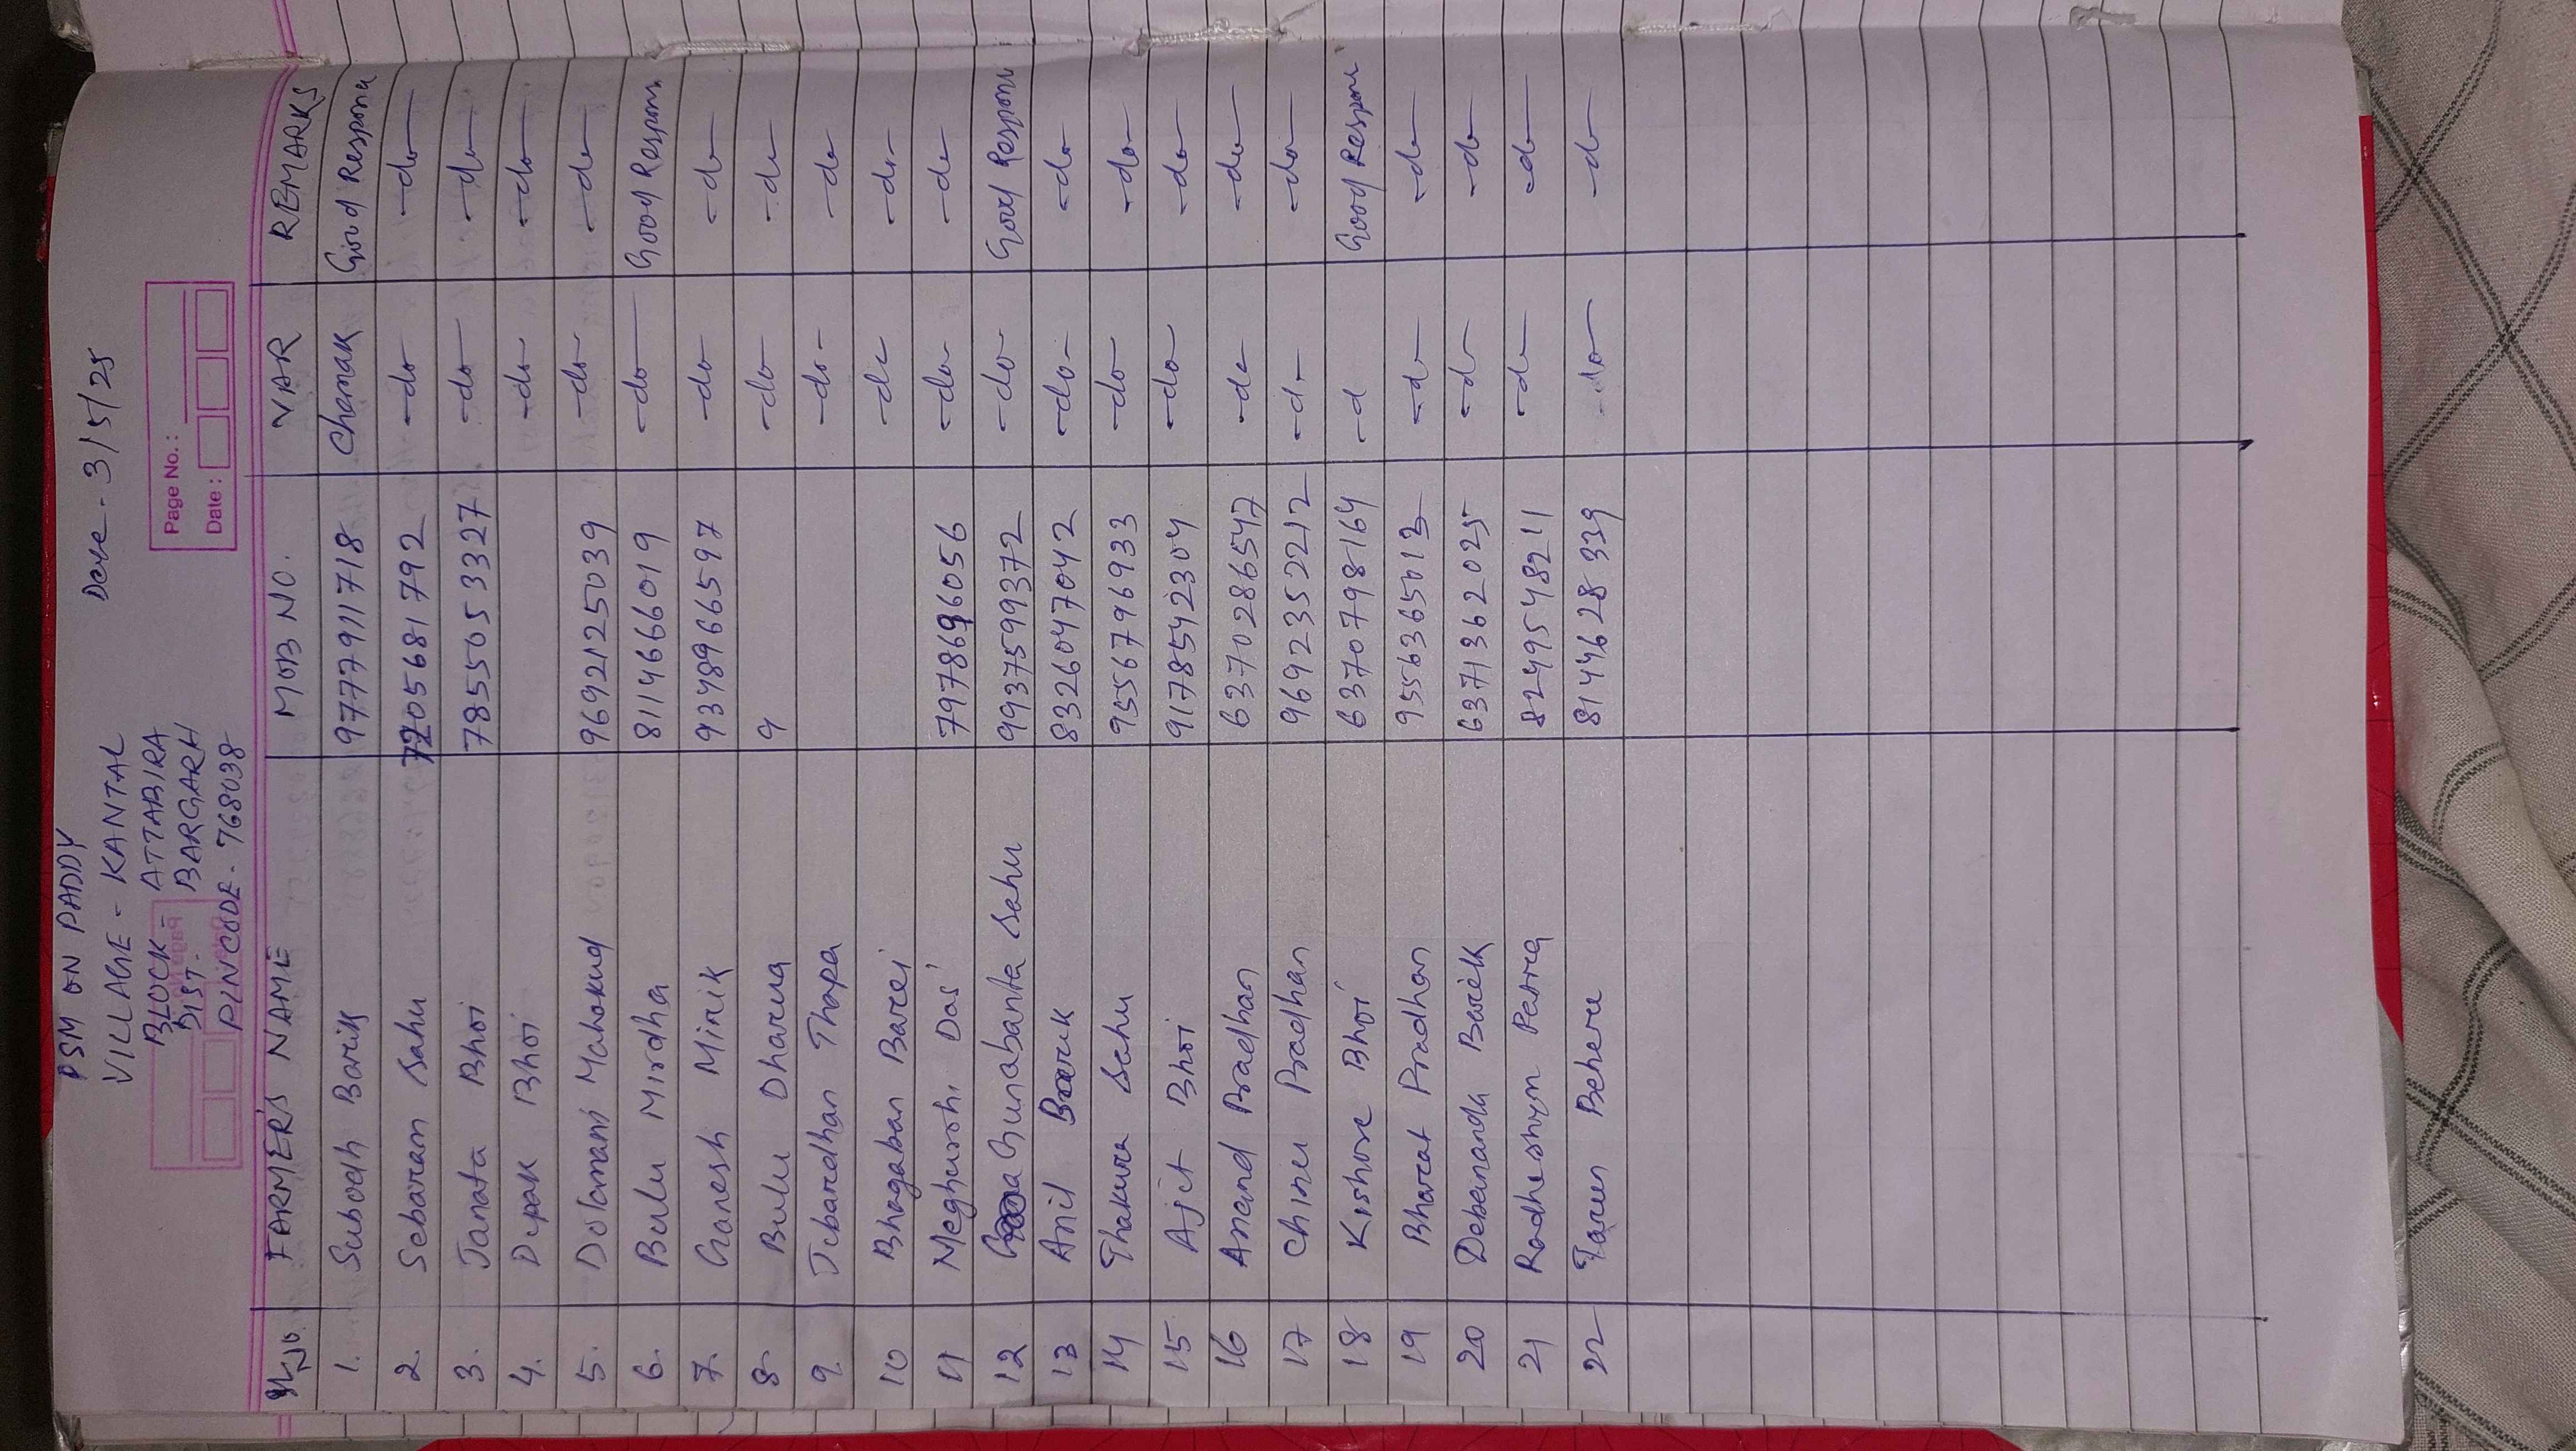 PSM ON PADDY
VILLAGE - KANTAL Date - 3/5/25
BLOCK - ATTABIRA
DIST. - BARGARH
PINCODE - 768038
Page No. :
Date :
Sl. No. FARMER'S NAME MOB NO. VAR REMARKS
1. Subodh Barik 9777911718 Chamak Good Response
2. Sebaram Sahu 7205681792 -do- -do-
3. Janata Bhoi 7855053327 -do- -do-
4. Dipak Bhoi -do- -do-
5. Dolamani Mahakud 9692125039 -do- -do-
6. Bulu Mirdha 8114666019 -do- Good Respons
7. Ganesh Minik 9348966597 -do -do-
8. Bulu Dharua 9 -do- -do
9. Jebardhan Thapa -do- -do
10 Bhagaban Barei -do -do-
11 Meghu Das 7978696056 -do- -do
12 Gunabanta Sahu 9937599372 -do- Good Respons
13 Anil Barik 8326047042 -do- -do-
14 Thakura Sahu 9556796933 -do- -do-
15. Ajit Bhoi 9178542304 -do- -do-
16 Anand Pradhan 6370286547 -do -do-
17 Chinu Pradhan 9692352212 -do- -do-
18 Kishore Bhoi 6370798164 -d Good Respons
19 Bharat Pradhan 9556365013 -do- -do-
20 Debananda Barik 6371362025 -do- -do-
21 Radheshym Patra 8249548211 -do- -do-
22 Tarun Behera 8144628339 -do- -do-